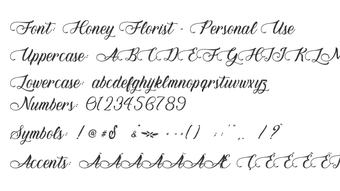 Font: Honey Florist - Personal Use
Uppercase: A B C D E F G H I J K L M
Lowercase: abcdefghyklmnopqrstuvwxyz
Numbers: 0123456789
Symbols: ! @ # $ & * - ( ) : ; " ' , / ?
Accents: À Á Â Ã Ä Å Æ Ç È É Ê Ë